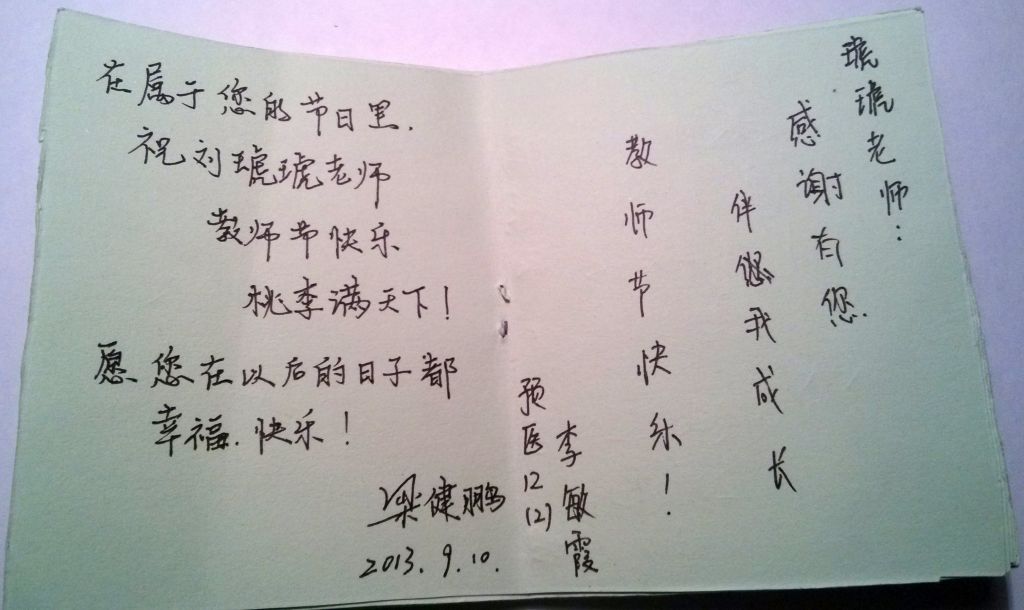 在属于您的节日里.
祝刘琥琥老师
教师节快乐
桃李满天下!
愿您在以后的日子都
幸福.快乐!
梁健鹏
2013.9.10.
琥琥老师:
感谢有您
伴您我成长
教师节快乐!
预医12(2)
李敏霞